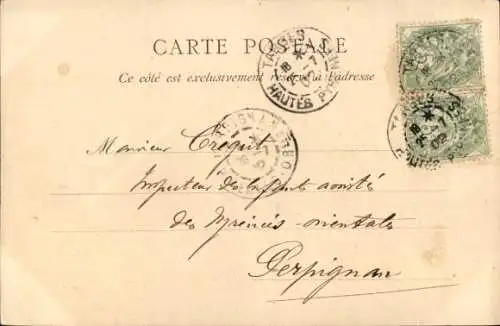 CARTE POSTALE
Ce côté est exclusivement réservé à l'adresse
TARBES
HAUTES PYR
TARBES
Monsieur Crequt
Inspecteur des Enfants assistés
des Pyrénées-orientales
Perpignan